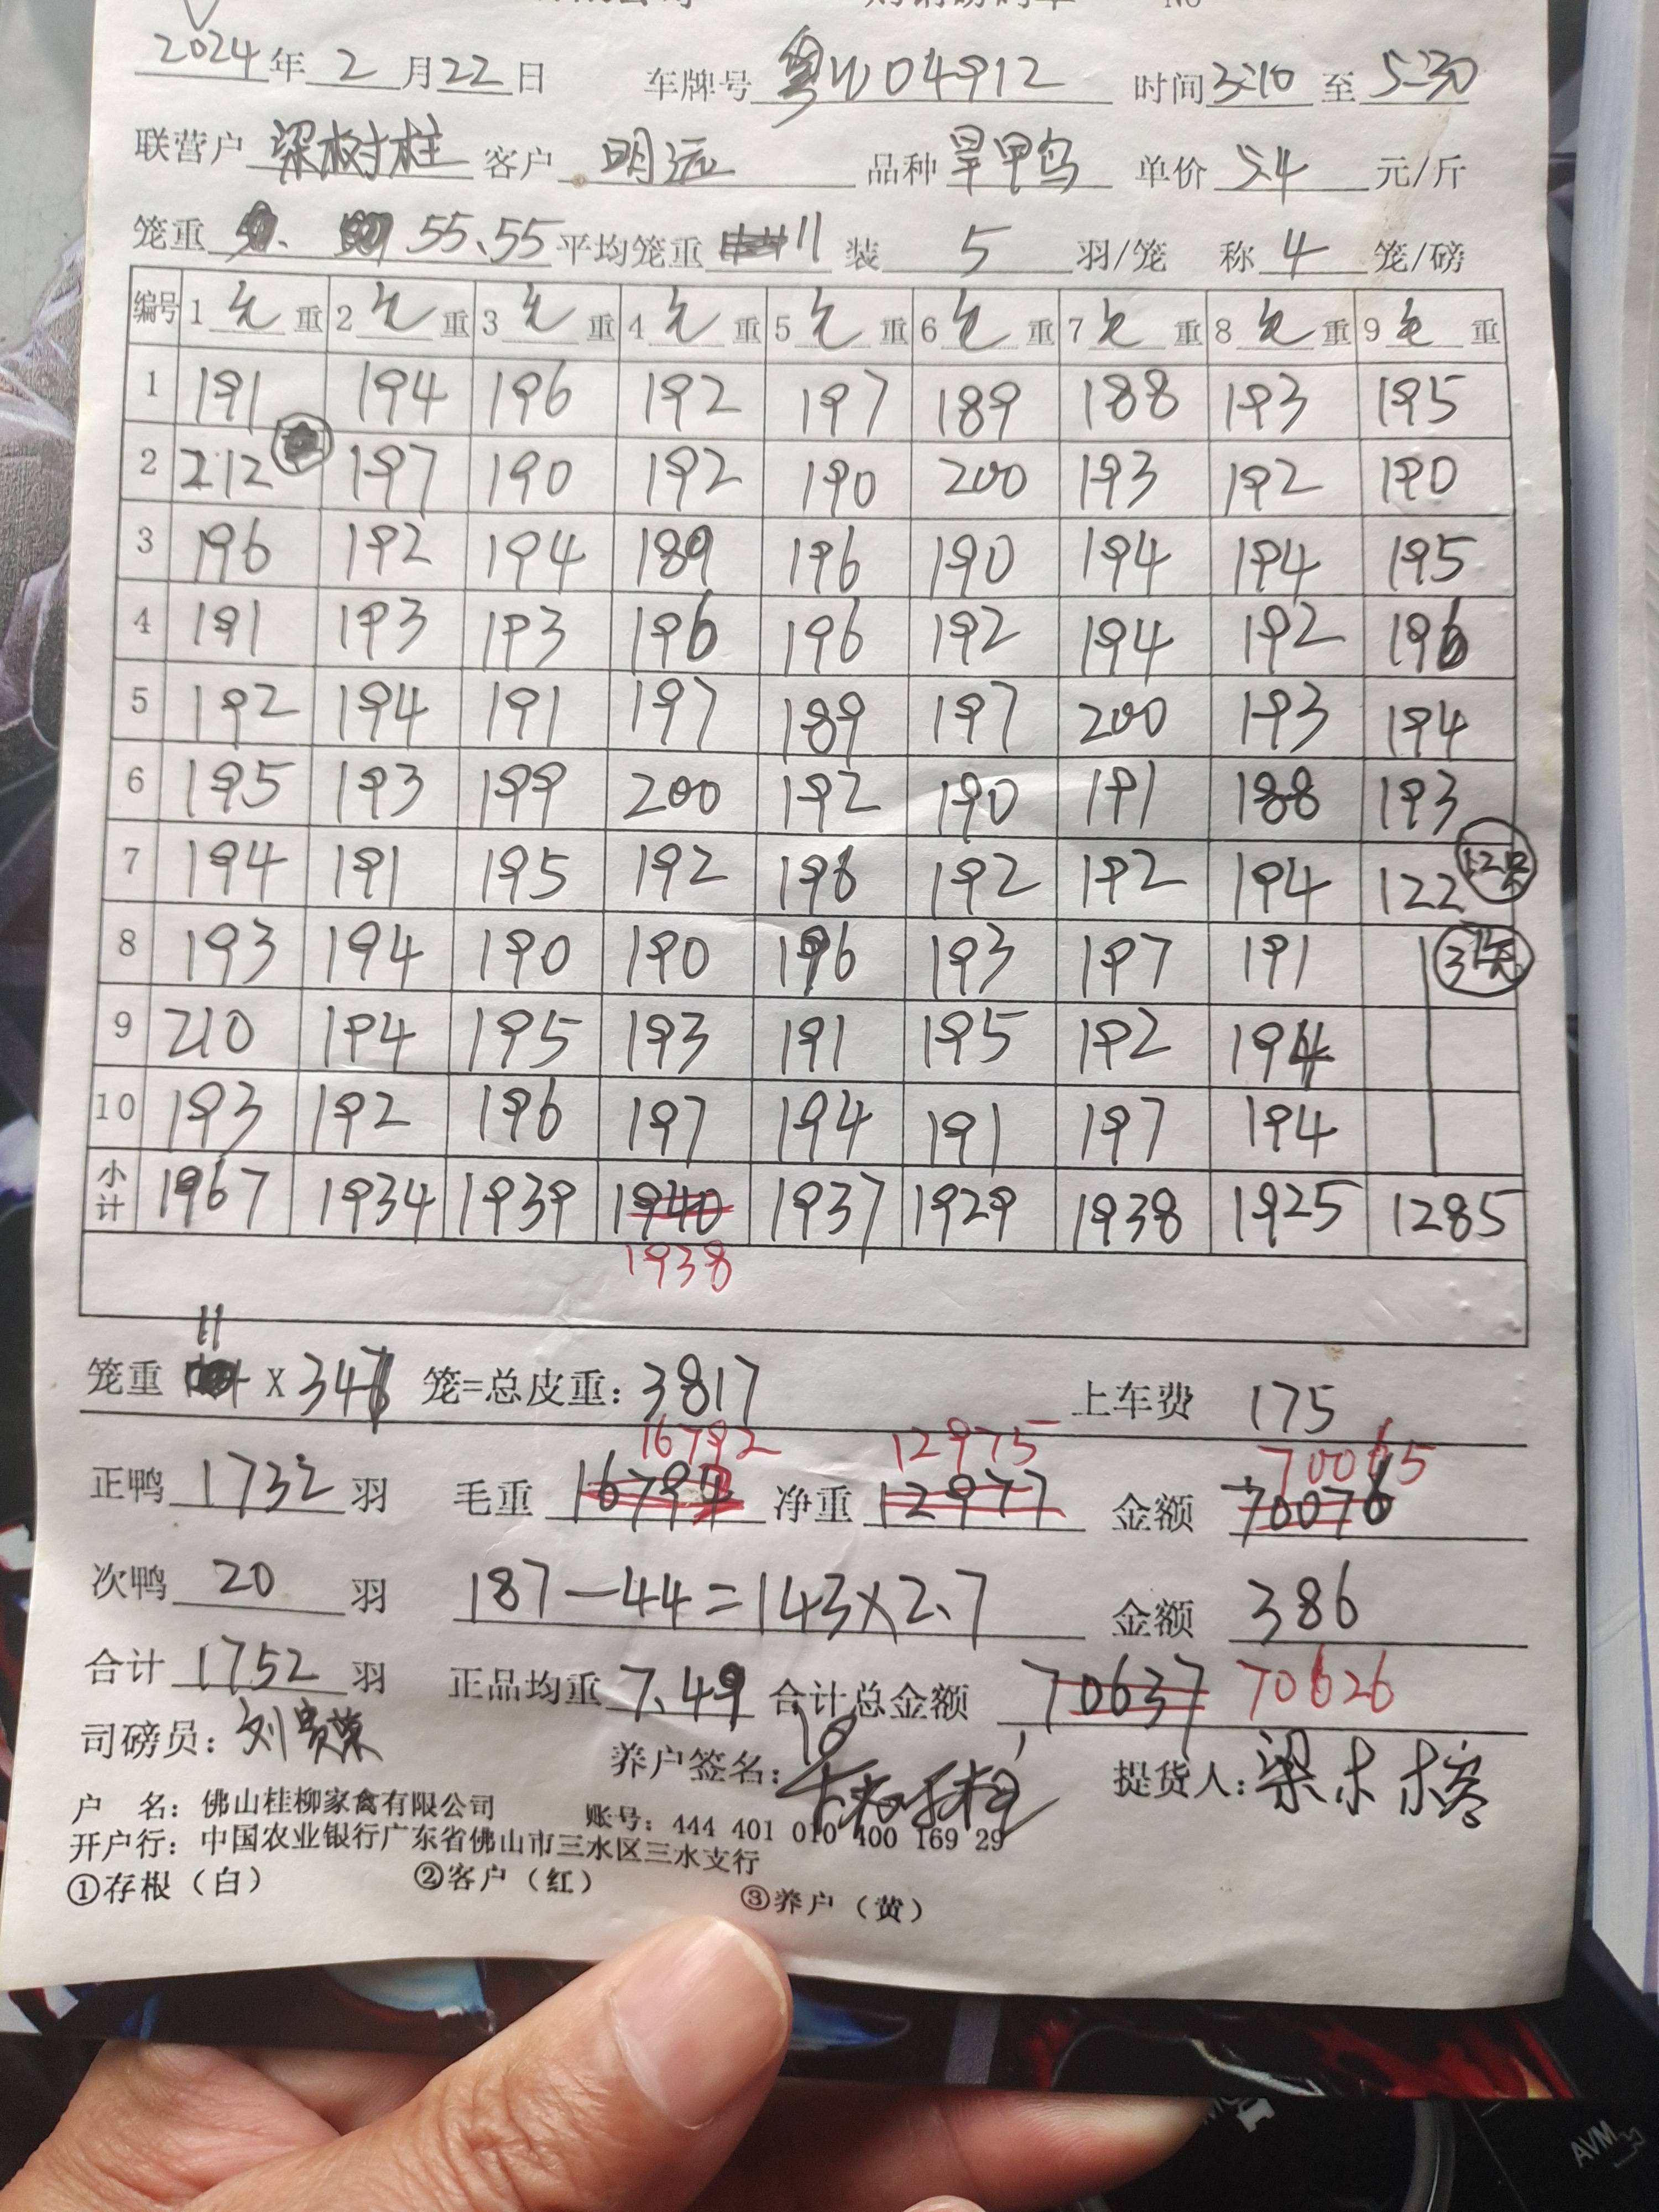 2024年2月22日 车牌号粤W04912 时间3:10至5:30
联营户 梁树柱 客户 明运 品种 旱甲鸟 单价 5.4 元/斤
笼重 55、55 平均笼重 11 装 5 羽/笼 称 4 笼/磅
编号 1 毛 重 2 毛 重 3 毛 重 4 毛 重 5 毛 重 6 毛 重 7 毛 重 8 毛 重 9 毛 重
1 191 194 196 192 197 189 188 193 195
2 212 197 190 192 190 200 193 192 190
3 196 192 194 189 196 190 194 194 195
4 191 193 193 196 196 192 194 192 196
5 192 194 191 197 189 197 200 193 194
6 195 193 199 200 192 190 191 188 193
7 194 191 195 192 196 192 192 194 122 12只
8 193 194 190 190 196 193 197 191
9 210 194 195 193 191 195 192 194
10 193 192 196 197 194 191 197 194
小计 1967 1934 1939 1940 1937 1929 1938 1925 1285
1938
11
笼重 X 347 笼=总皮重: 3817 上车费 175
16792 12975 70065
正鸭 1732 羽 毛重 16794 净重 12977 金额 70076
次鸭 20 羽 187-44=143×2.7 金额 386
合计 1752 羽 正品均重 7.49 合计总金额 70637 70626
司磅员: 刘贵荣 养户签名: 提货人: 梁木榕
户 名: 佛山桂柳家禽有限公司 账号: 444 401 010 400 169 29
开户行: 中国农业银行广东省佛山市三水区三水支行
①存根（白） ②客户（红） ③养户（黄）
AVM